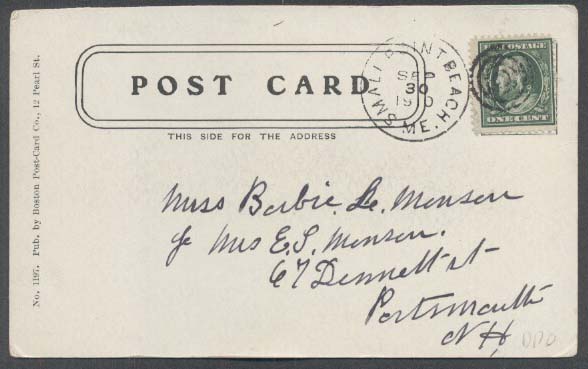 POST CARD
THIS SIDE FOR THE ADDRESS
SMALL POINT BEACH
ME.
SEP
30
1910
U.S. POSTAGE
ONE CENT
Miss Barbie. Le. Monson
Mrs E. S. Monson.
67 Dennett st
Portsmouth
N H,
DPO
No. 1197. Pub. by Boston Post-Card Co., 12 Pearl St.